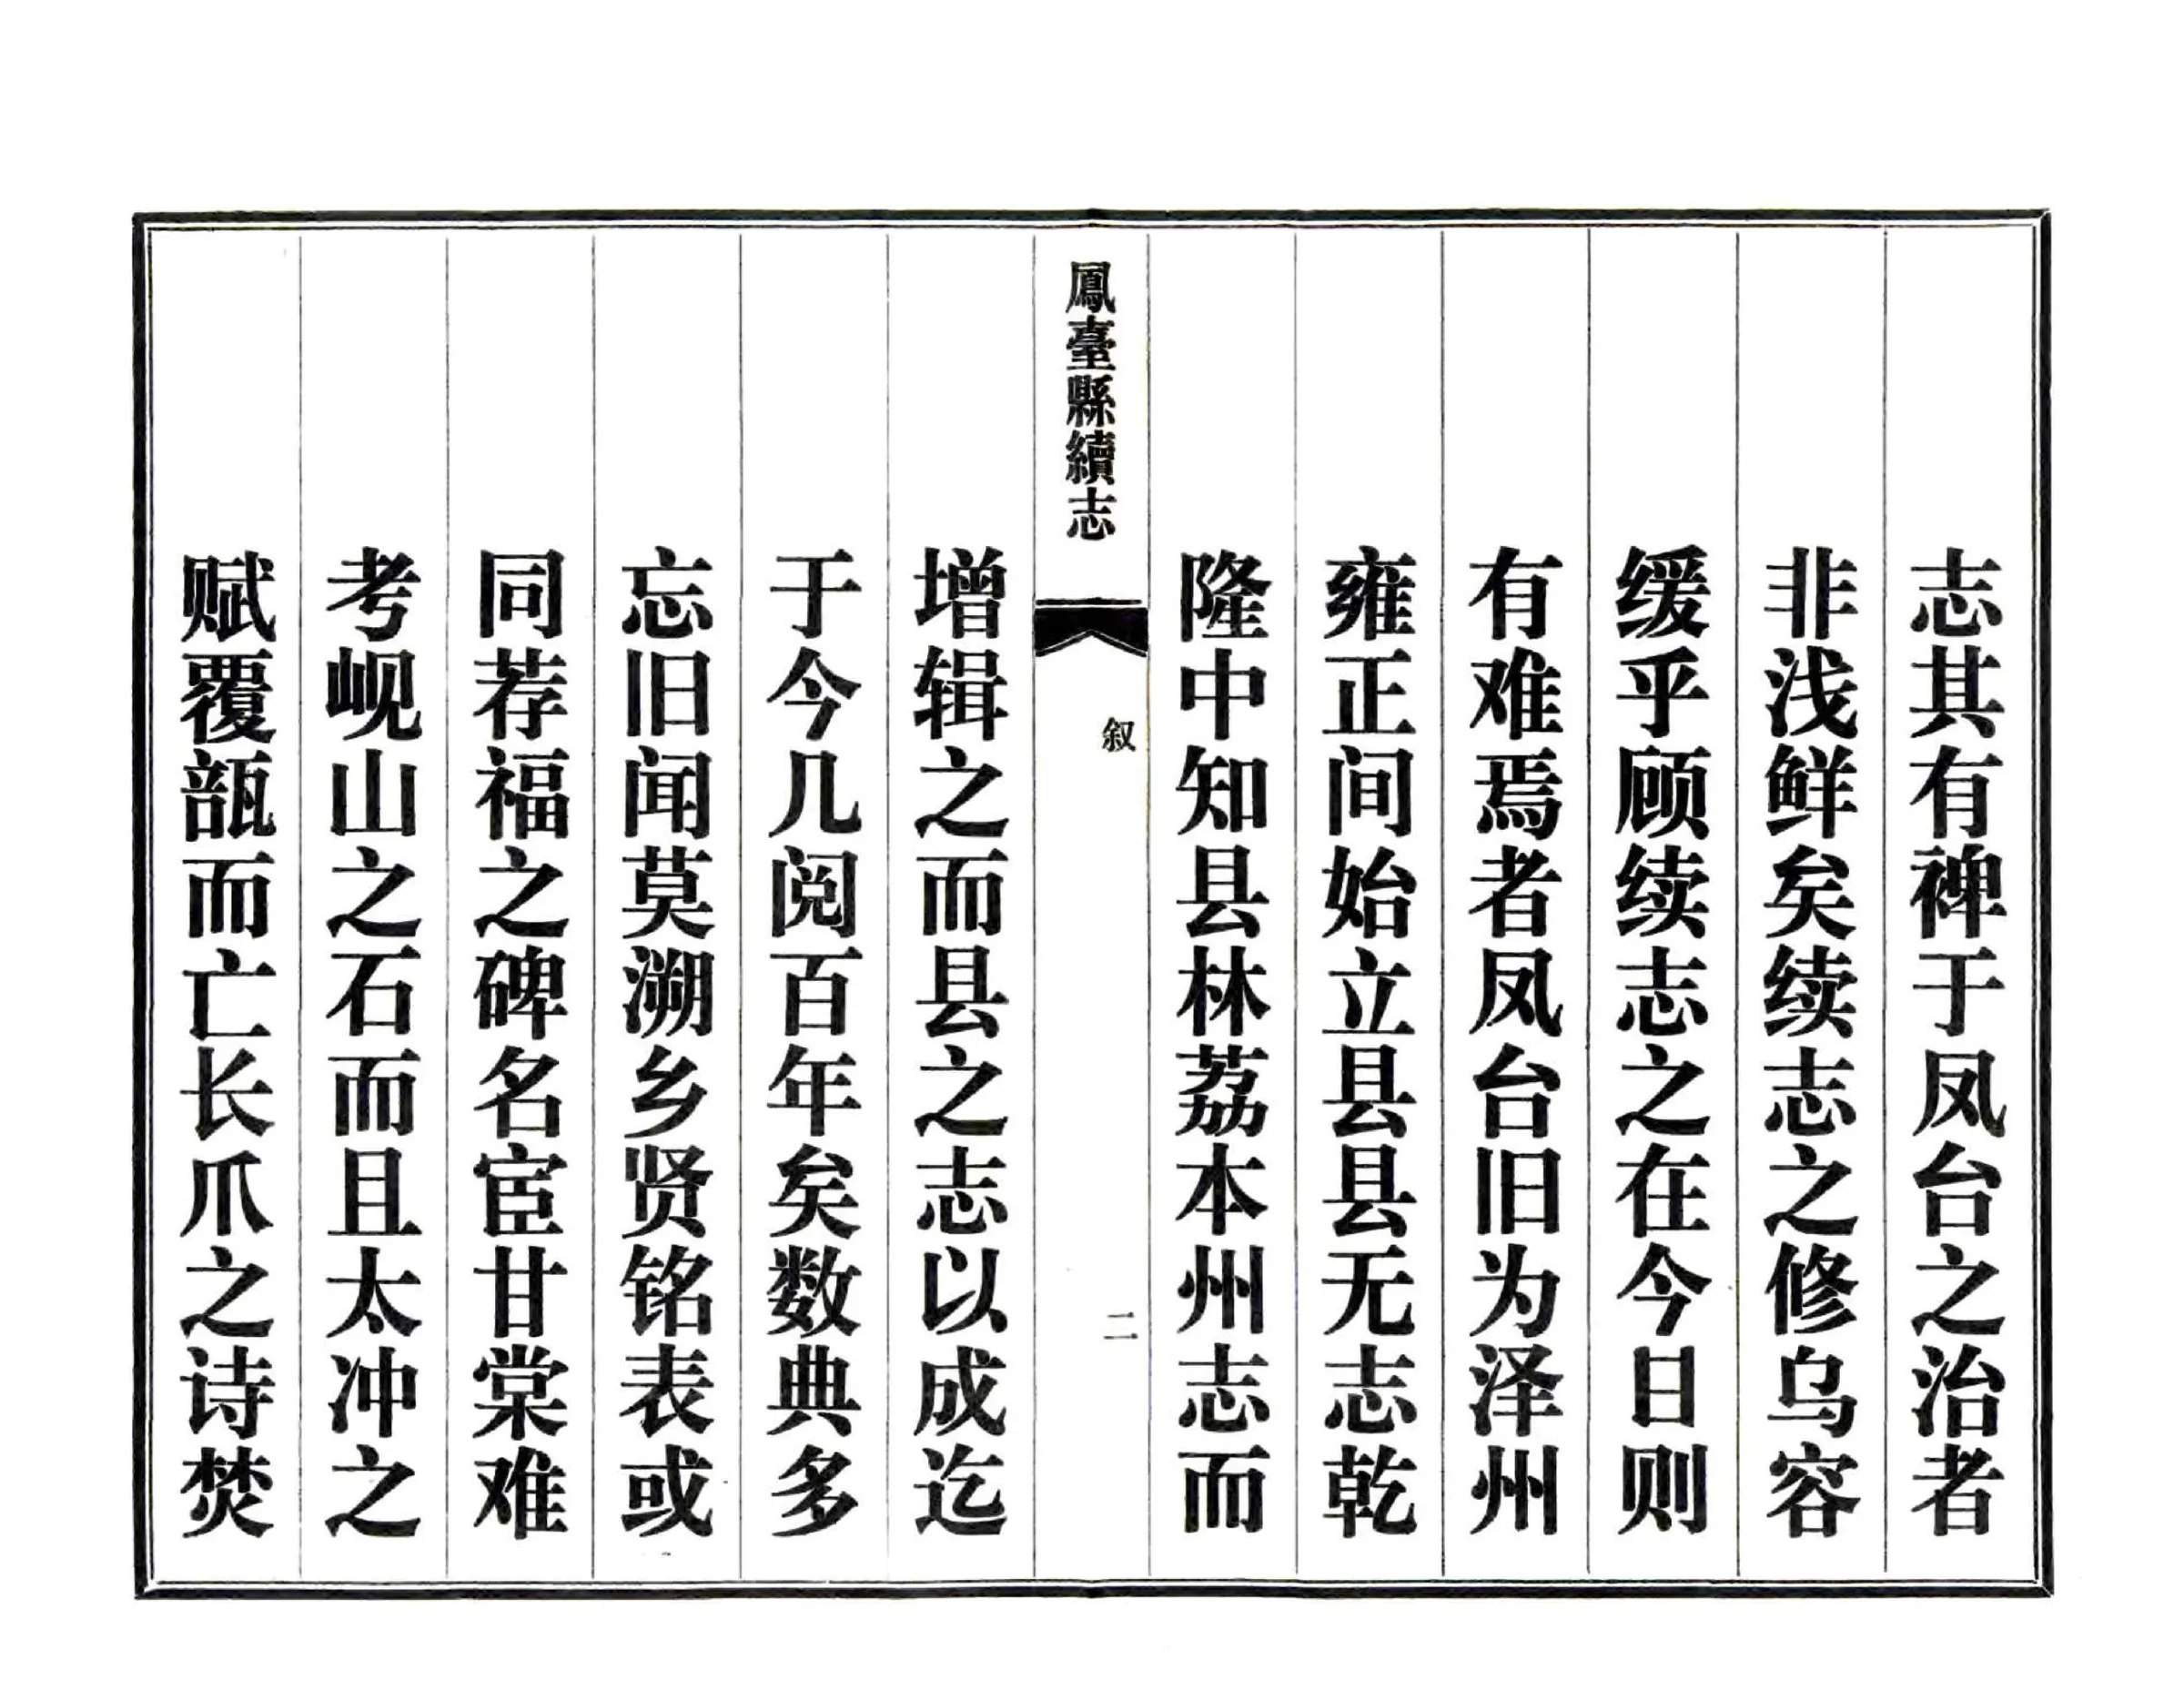 志其有裨于凤台之治者
非浅鲜矣续志之修乌容
缓乎顾续志之在今日则
有难焉者凤台旧为泽州
雍正间始立县县无志乾
隆中知县林荔本州志而
鳳臺縣續志
叙
二
增辑之而县之志以成迄
于今几阅百年矣数典多
忘旧闻莫溯乡贤铭表或
同荐福之碑名宦甘棠难
考岘山之石而且太冲之
赋覆瓿而亡长爪之诗焚